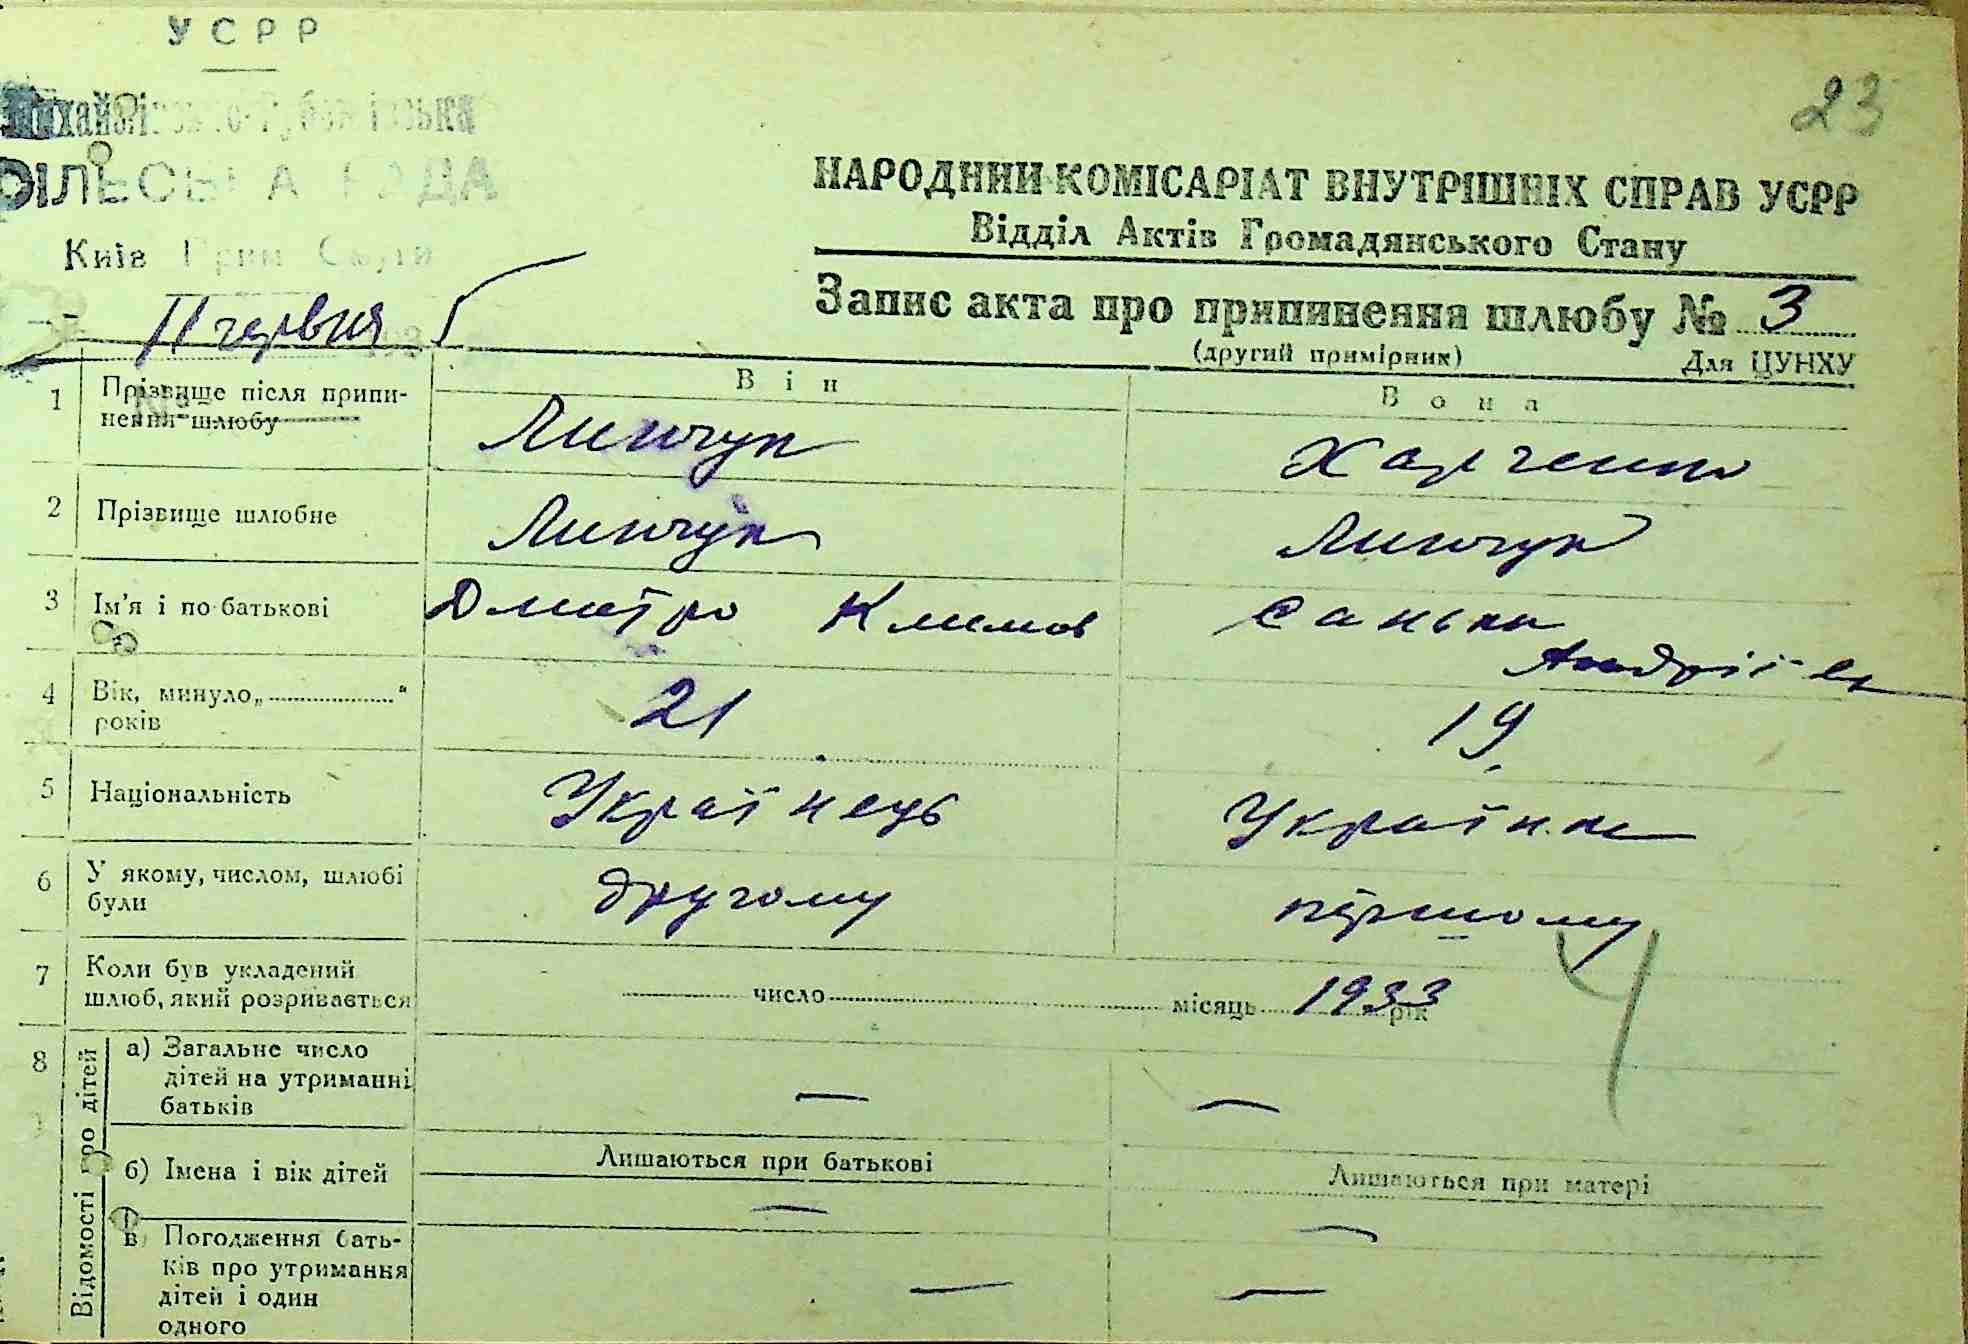 УСРР
23
СІЛЬСЬКА РАДА
НАРОДНИЙ КОМІСАРІАТ ВНУТРІШНІХ СПРАВ УСРР
Відділ Актів Громадянського Стану
Київ Прим Смуги
Запис акта про припинення шлюбу № 3
11 червня 5
(другий примірник) Для ЦУНХУ
Він Вона
1 Прізвище після припи-
нення шлюбу Линчук Харченко
2 Прізвище шлюбне Линчук Линчук
3 Ім'я і по-батькові Дмитро Климов Санька
Андріїв
4 Вік, минуло „ “
років 21 19
5 Національність Українець Українка
6 У якому, числом, шлюбі
були другому першому
7 Коли був укладений
шлюб, який розривається число місяць 1933 рік
8 Відомості про дітей
а) Загальне число
дітей на утриманні
батьків — —
б) Імена і вік дітей Лишаються при батькові Лишаються при матері
— —
в) Погодження бать-
ків про утримання
дітей і один
одного — —